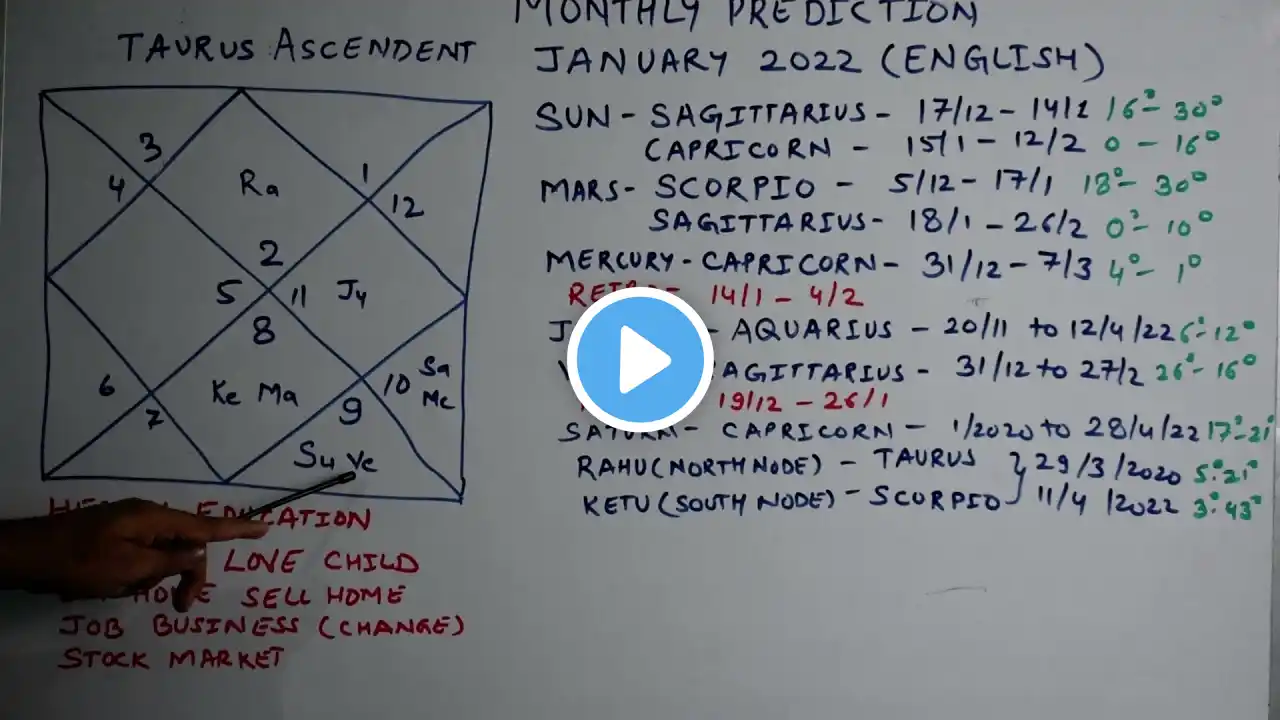 MONTHLY PREDICTION
TAURUS ASCENDENT
JANUARY 2022 (ENGLISH)
3
4
Ra
1
12
2
5
11
Jy
8
6
7
Ke Ma
10
Sa
Me
9
Su Ve
SUN - SAGITTARIUS - 17/12 - 14/1 16° - 30°
CAPRICORN - 15/1 - 12/2 0 - 16°
MARS - SCORPIO - 5/12 - 17/1 18° - 30°
SAGITTARIUS - 18/1 - 26/2 0° - 10°
MERCURY - CAPRICORN - 31/12 - 7/3 4° - 1°
14/1 - 4/2
- AQUARIUS - 20/11 to 12/4/22 6° - 12°
31/12 to 27/2 26° - 16°
19/12 - 26/1
SATURN - CAPRICORN - 1/2020 to 28/4/22 17° - 21°
RAHU (NORTH NODE) - TAURUS } 29/3/2020 5°: 21°
KETU (SOUTH NODE) - SCORPIO 11/4/2022 3°: 43°
EDUCATION
LOVE CHILD
HOME SELL HOME
JOB BUSINESS (CHANGE)
STOCK MARKET